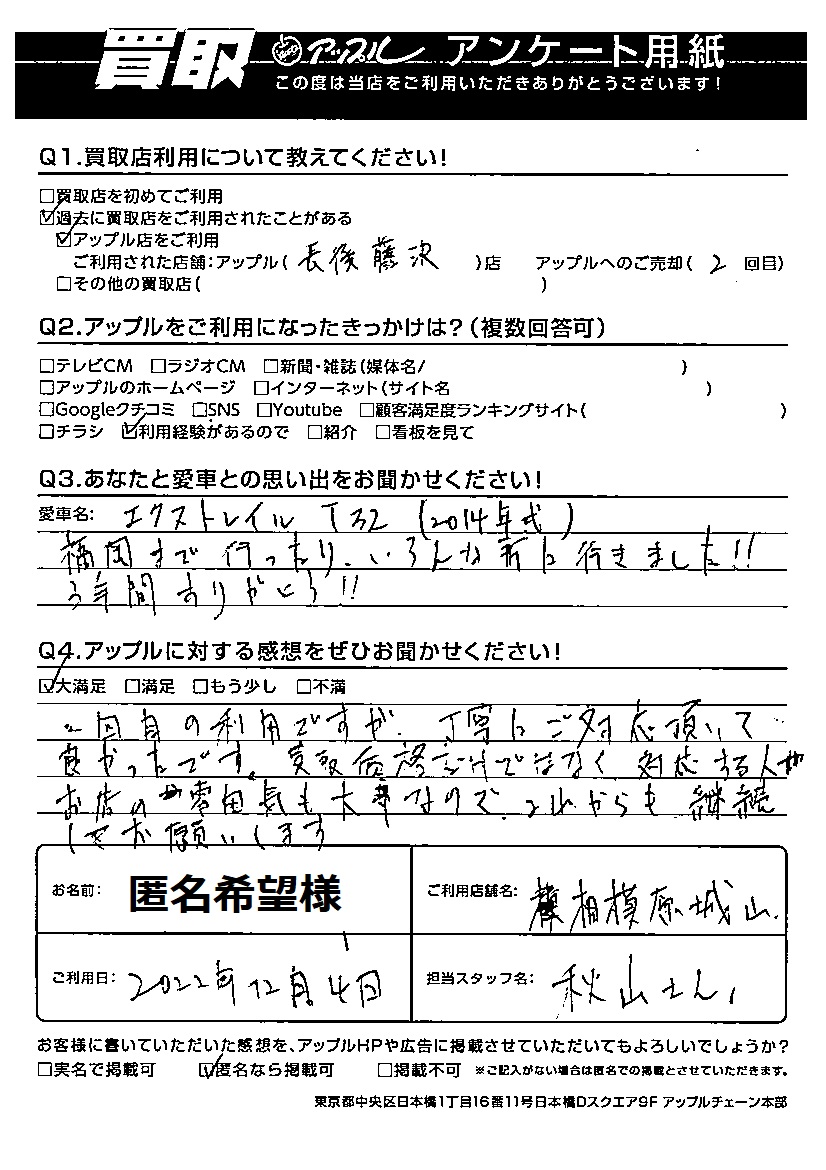 買取 アップル アンケート用紙
この度は当店をご利用いただきありがとうございます!
Q1.買取店利用について教えてください!
□買取店を初めてご利用
☑過去に買取店をご利用されたことがある
☑アップル店をご利用
ご利用された店舗:アップル( 長後藤沢 )店 アップルへのご売却( 2 回目)
□その他の買取店( )
Q2.アップルをご利用になったきっかけは?(複数回答可)
□テレビCM □ラジオCM □新聞・雑誌(媒体名/ )
□アップルのホームページ □インターネット(サイト名 )
□Googleクチコミ □SNS □Youtube □顧客満足度ランキングサイト( )
□チラシ ☑利用経験があるので □紹介 □看板を見て
Q3.あなたと愛車との思い出をお聞かせください!
愛車名: エクストレイル T32 (2014年式)
福岡まで行ったり、いろんな所に行きました!!
3年間ありがとう!!
Q4.アップルに対する感想をぜひお聞かせください!
☑大満足 □満足 □もう少し □不満
2回目の利用ですが、丁寧にご対応頂いて
良かったです。買取価格だけではなく対応する人や
お店の雰囲気も大事なので、これからも継続
してお願いします
お名前: 匿名希望様 ご利用店舗名: 相模原城山
ご利用日: 2022年12月4日 担当スタッフ名: 秋山さん
お客様に書いていただいた感想を、アップルHPや広告に掲載させていただいてもよろしいでしょうか?
□実名で掲載可 ☑匿名なら掲載可 □掲載不可 ※ご記入がない場合は匿名での掲載とさせていただきます。
東京都中央区日本橋1丁目16番11号日本橋Dスクエア9F アップルチェーン本部